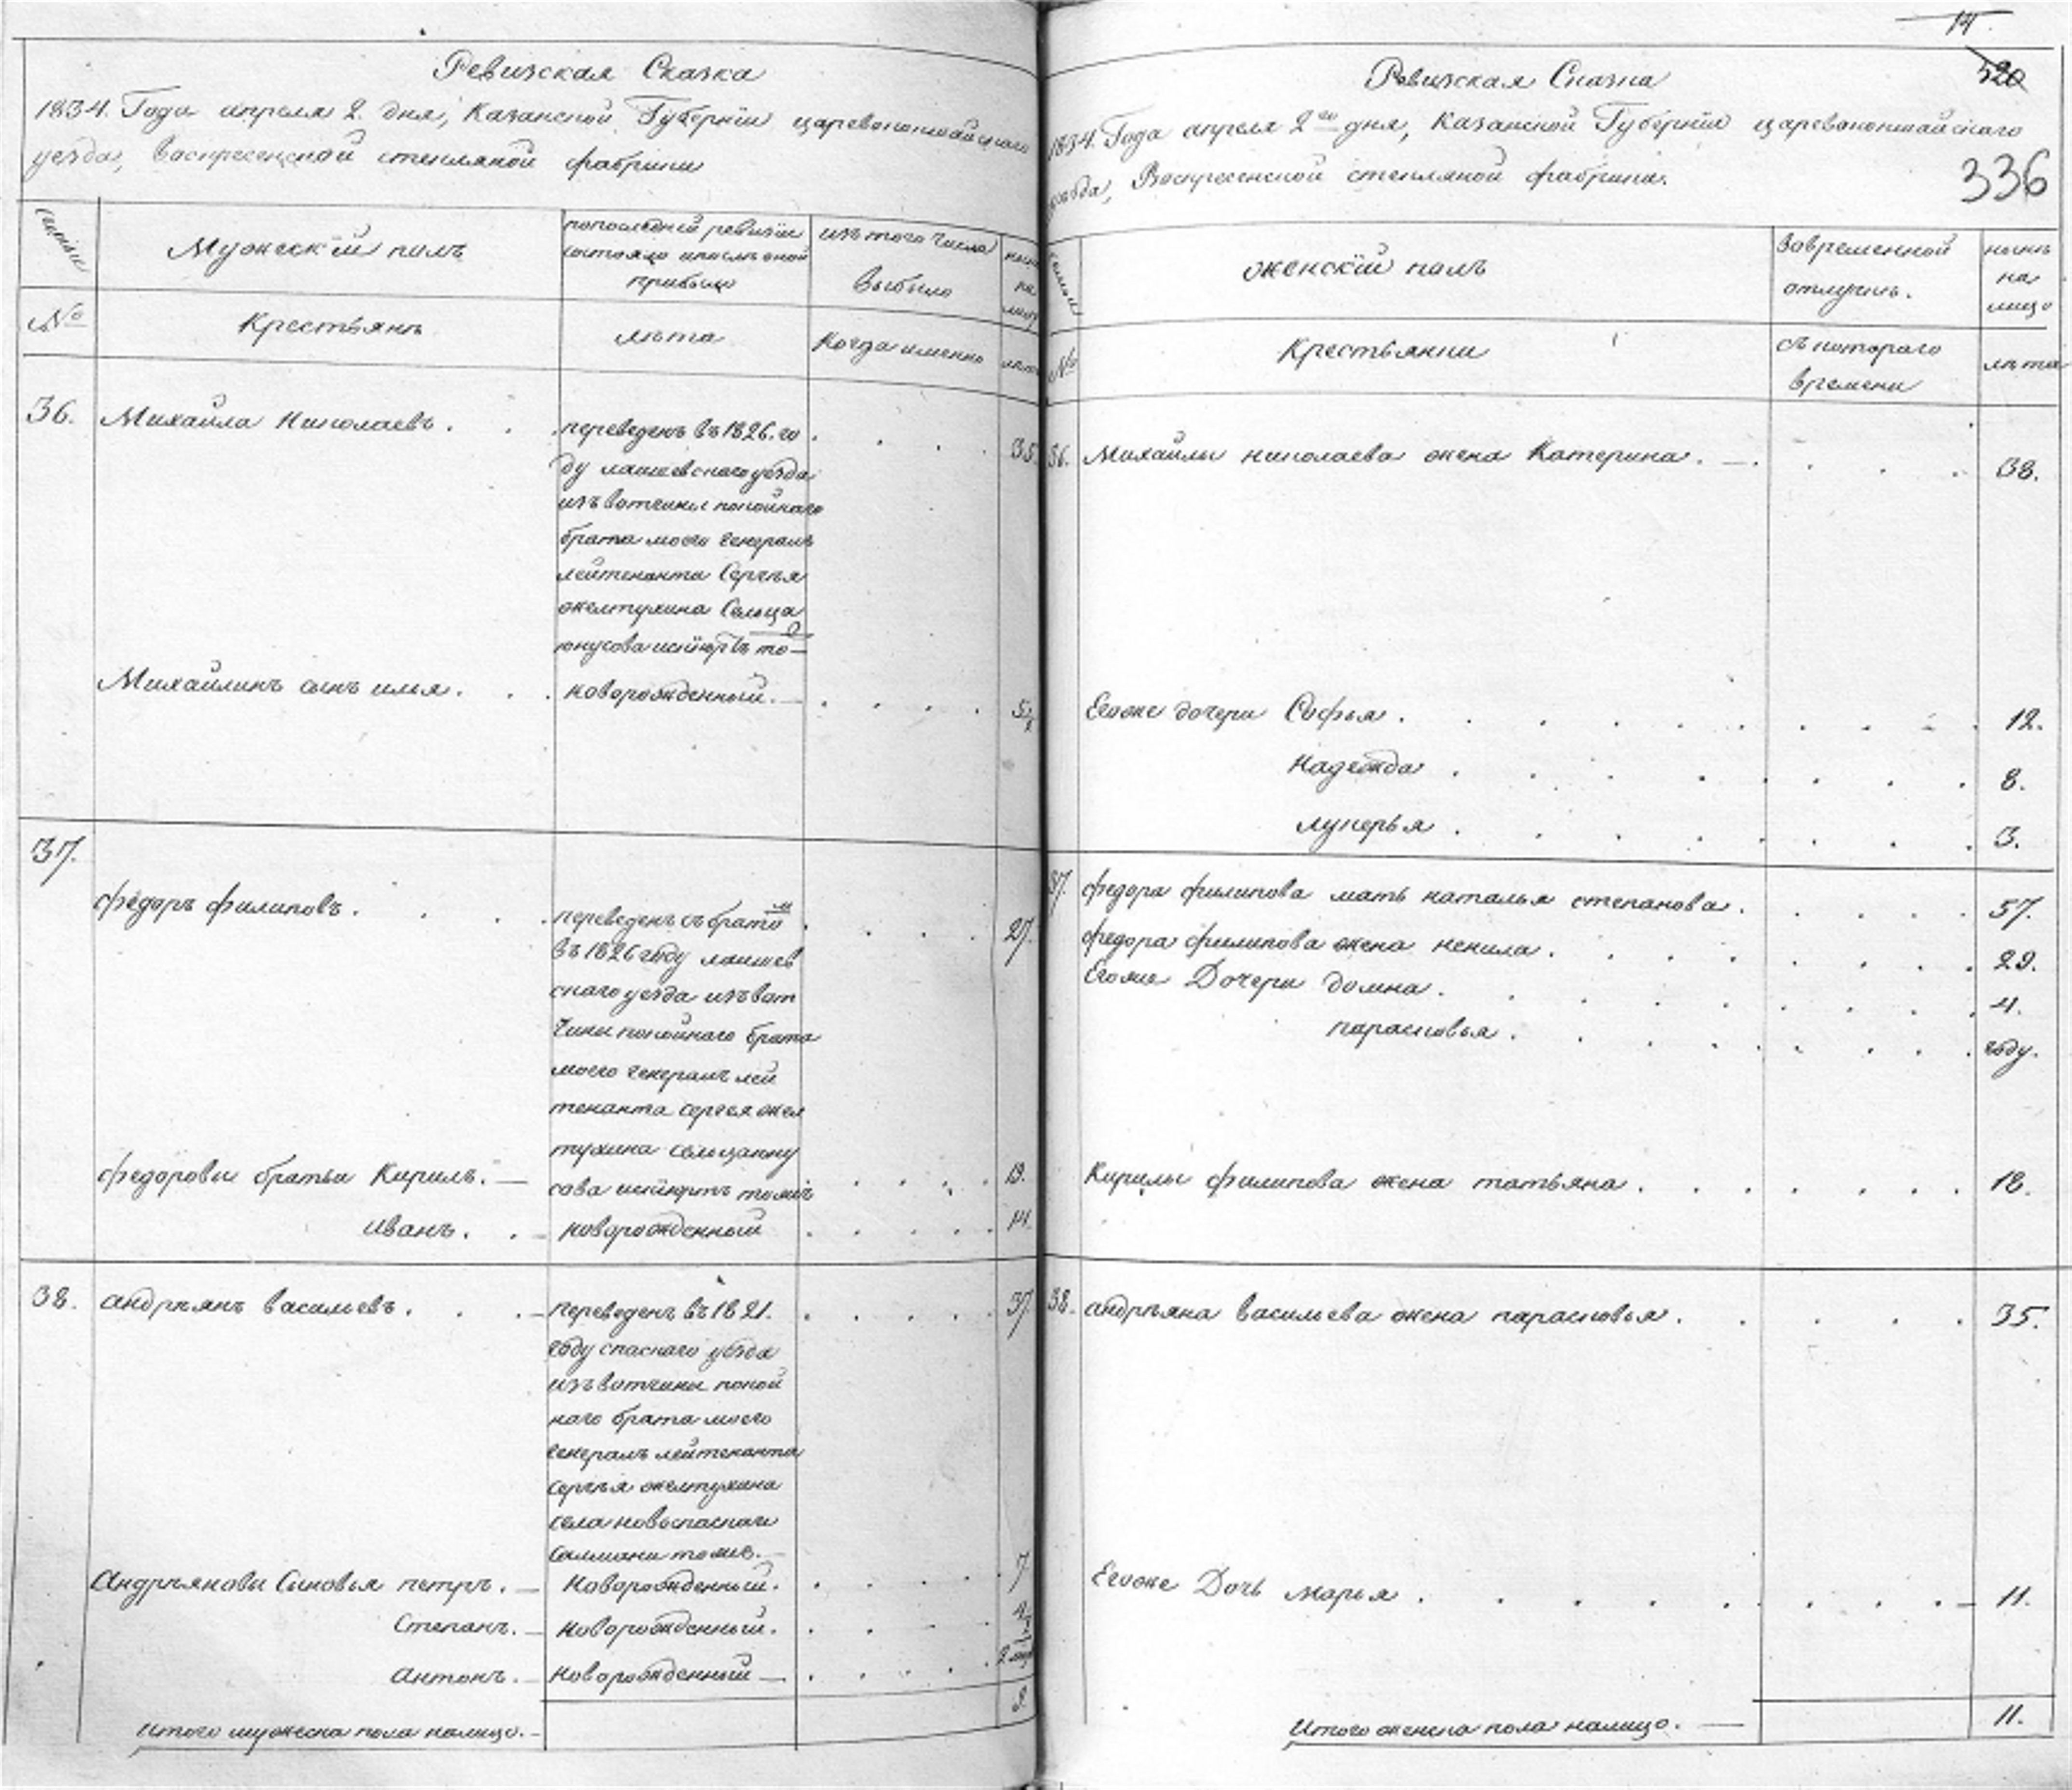 Ревизская Сказка
1834. Года апреля 2. дня, Казанской Губернїи царевококшайскаго
уезда, Воскресенской стекляной фабрики
Мужескїй полъ
попоследней ревизїи
состояло ипослѣ оной
прибыло
изъ того числа
выбыло
ныне
на
лицо
№
Крестьянъ
лѣта
когда именно
лѣта
36. Михайла Николаевъ . . . переведенъ въ 1826. го . . . 35.
ду лаишевскаго уѣзда
изъ вотчины покойнаго
брата моего генералъ
лейтенанта Сергѣя
желтухина Сельца
юнусова
Михайлинъ сынъ илья. . . новорожденный. — . . . .
37.
федоръ филиповъ. . . . переведенъ съ брато м . . . . 27.
въ 1826 году лаишев
скаго уезда изъ вот
чины покойнаго брата
моего генералъ лей
тенанта сергея жел
тухина
федоровы братья Кирилъ. — . . . . 19.
Иванъ. . — новорожденный . . . . . 14.
38. андрѣянъ васильевъ. . . — переведенъ въ 1821. . . . . . 37.
году спаскаго уѣзда
изъ вотчины покой
наго брата моего
генералъ лейтенанта
сергѣя желтухина
села
Андрѣяновы Сыновья петръ. — Новорожденный. . . . . 7.
Степанъ. — Новорожденный. . . .
Антонъ. — Новорожденный — . . . . .
итого мужеска пола налицо. — 8.
14.
520
Ревизская Сказка
1834. Года апреля 2го дня, Казанской Губернїи царевококшайскаго
уезда, Воскресенской стекляной фабрики.
336
женскїй полъ
вовременной
отлучкѣ.
нынѣ
на
лицо
№
Крестьянки
съ котораго
времени
лѣта
36. Михайлы николаева жена Катерина. — . . . . 38.
Егоже дочери Софья . . . . . . . . . 12.
Надежда . . . . . . . . 8.
лукерья . . . . . . . . 3.
37. федора филипова мать наталья степанова. . . . . 57.
федора филипова жена ненила. . . . . . . . 29.
Егоже Дочери домна. . . . . . . . . 4.
парасковья . . . . . . . . году.
Кирилы филипова жена татьяна. . . . . . . 18.
38. андрѣяна васильева жена парасковья. . . . . 35.
Егоже Дочь марья . . . . . . . . — 11.
Итого женска пола налицо. — 11.